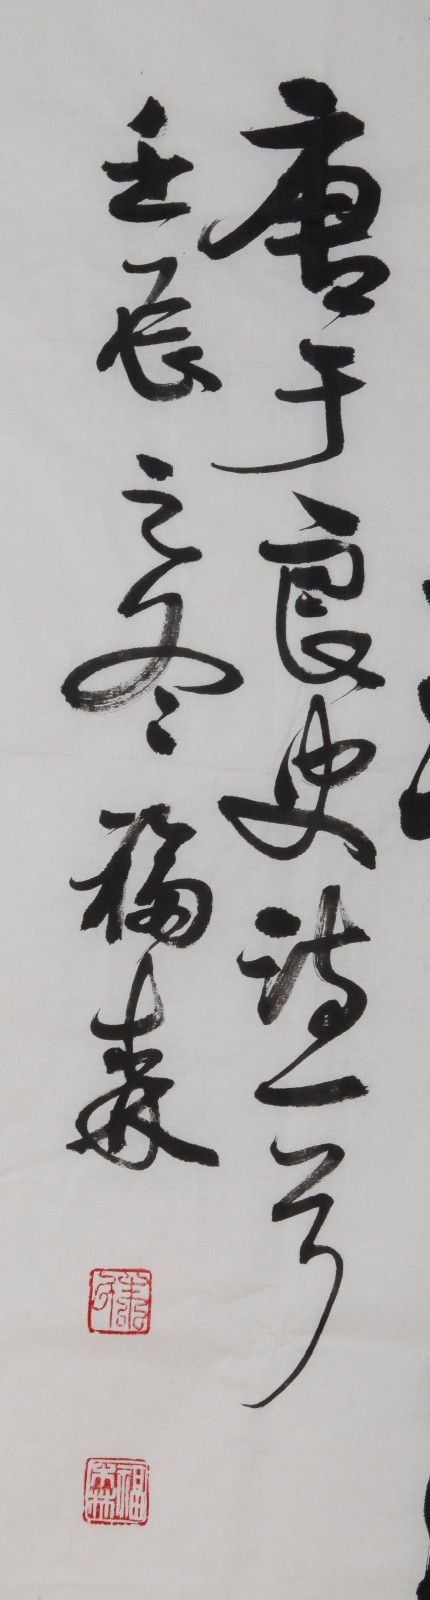 唐于良史诗一首
壬辰之冬福森
福森